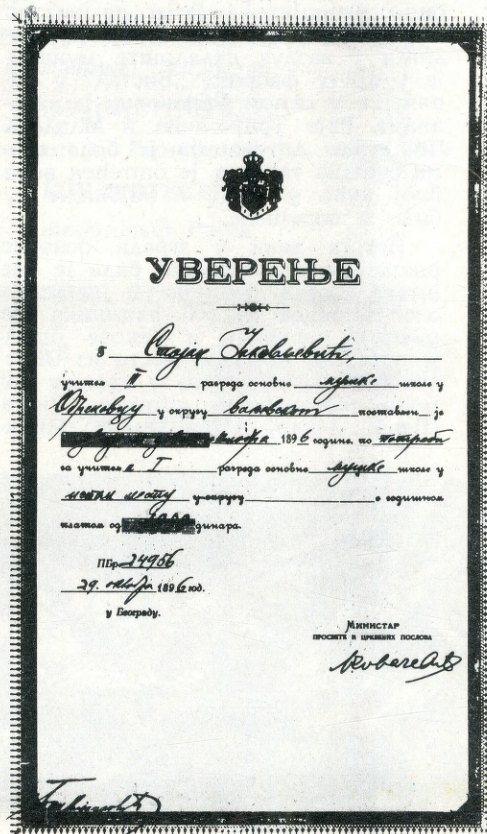 УВЕРЕЊЕ
г
Стојан Јаковљевић,
учитељ III разреда основне мушке школе у
у округу ваљевском постављен је
1896 године, по потреби
за учитеља I разреда основне мушке школе у
истом месту у округу с годишном
платом од динара.
ПБр 24956
29. октобра 1896 год.
у Београду.
МИНИСТАР
ПРОСВЕТЕ И ЦРКВЕНИХ ПОСЛОВА